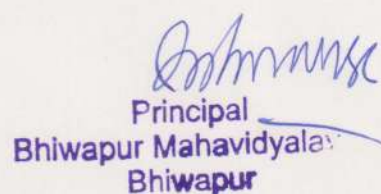 Principal
Bhiwapur Mahavidyalay
Bhiwapur